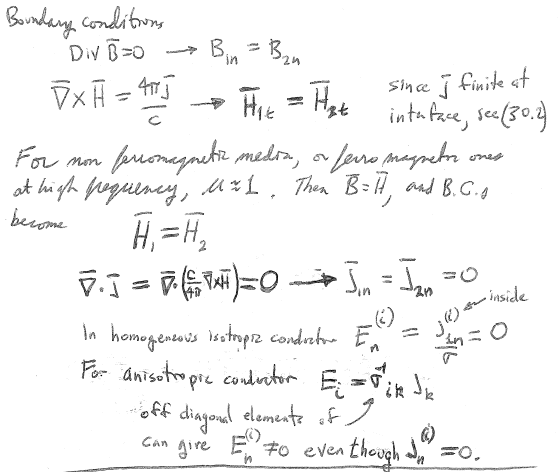 Boundary conditions
Div B̄=0 → B₁ₙ = B₂ₙ
∇̄×H̄ = 4πj̄/c → H̄₁ₜ = H̄₂ₜ since j̄ finite at
interface, see (30.2)
For non ferromagnetic media, or ferro magnetic ones
at high frequency, μ≈1. Then B̄=H̄, and B.C.s
become
H̄₁=H̄₂
∇̄·J̄ = ∇̄·(c/4π ∇̄×H̄)=0 → J̄₁ₙ = J̄₂ₙ =0
inside
In homogeneous isotropic conductor Eₙ⁽ⁱ⁾ = j₁ₙ⁽ⁱ⁾/σ = 0
For anisotropic conductor Eᵢ = σ⁻¹ᵢₖ Jₖ
off diagonal elements of
can give Eₙ⁽ⁱ⁾ ≠0 even though Jₙ⁽ⁱ⁾ =0.